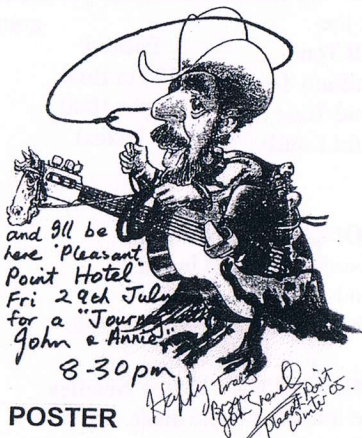 and I'll be
here "Pleasant
Point Hotel"
Fri 29th July
for a "Journey
John & Annie"
8-30pm
Happy Trails
John Grenell
Pleasant Point
Winter 05
POSTER